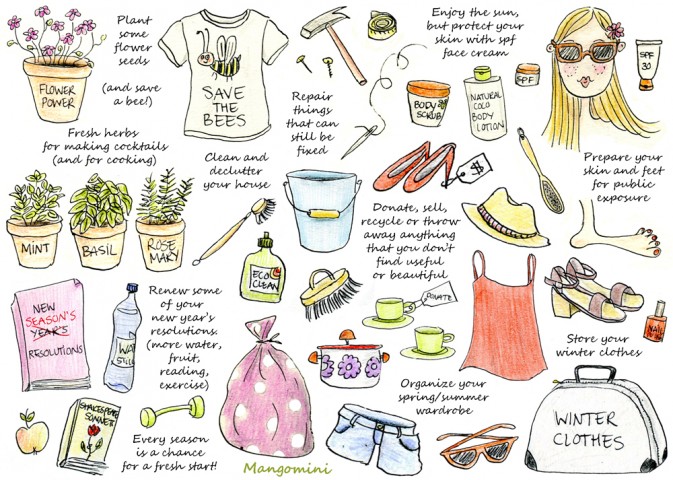 Plant
some
flower
seeds
(and save
a bee!)
FLOWER
POWER
SAVE
THE
BEES
Repair
things
that can
still be
fixed
Enjoy the sun,
but protect your
skin with spf
face cream
BODY
SCRUB
NATURAL
COCO
BODY
LOTION
SPF
SPF
30
Fresh herbs
for making cocktails
(and for cooking)
MINT
BASIL
ROSE
MARY
Clean and
declutter
your house
ECO
CLEAN
$
Donate, sell,
recycle or throw
away anything
that you don't
find useful
or beautiful
DONATE
Prepare your
skin and feet
for public
exposure
NAIL
NEW
SEASON'S
YEAR'S
RESOLUTIONS
WATER
STILL
Renew some
of your
new year's
resolutions.
(more water,
fruit,
reading,
exercise)
SHAKESPEARE
SONNETS
Every season
is a chance
for a fresh start!
Mangomini
Organize your
spring/summer
wardrobe
Store your
winter clothes
WINTER
CLOTHES